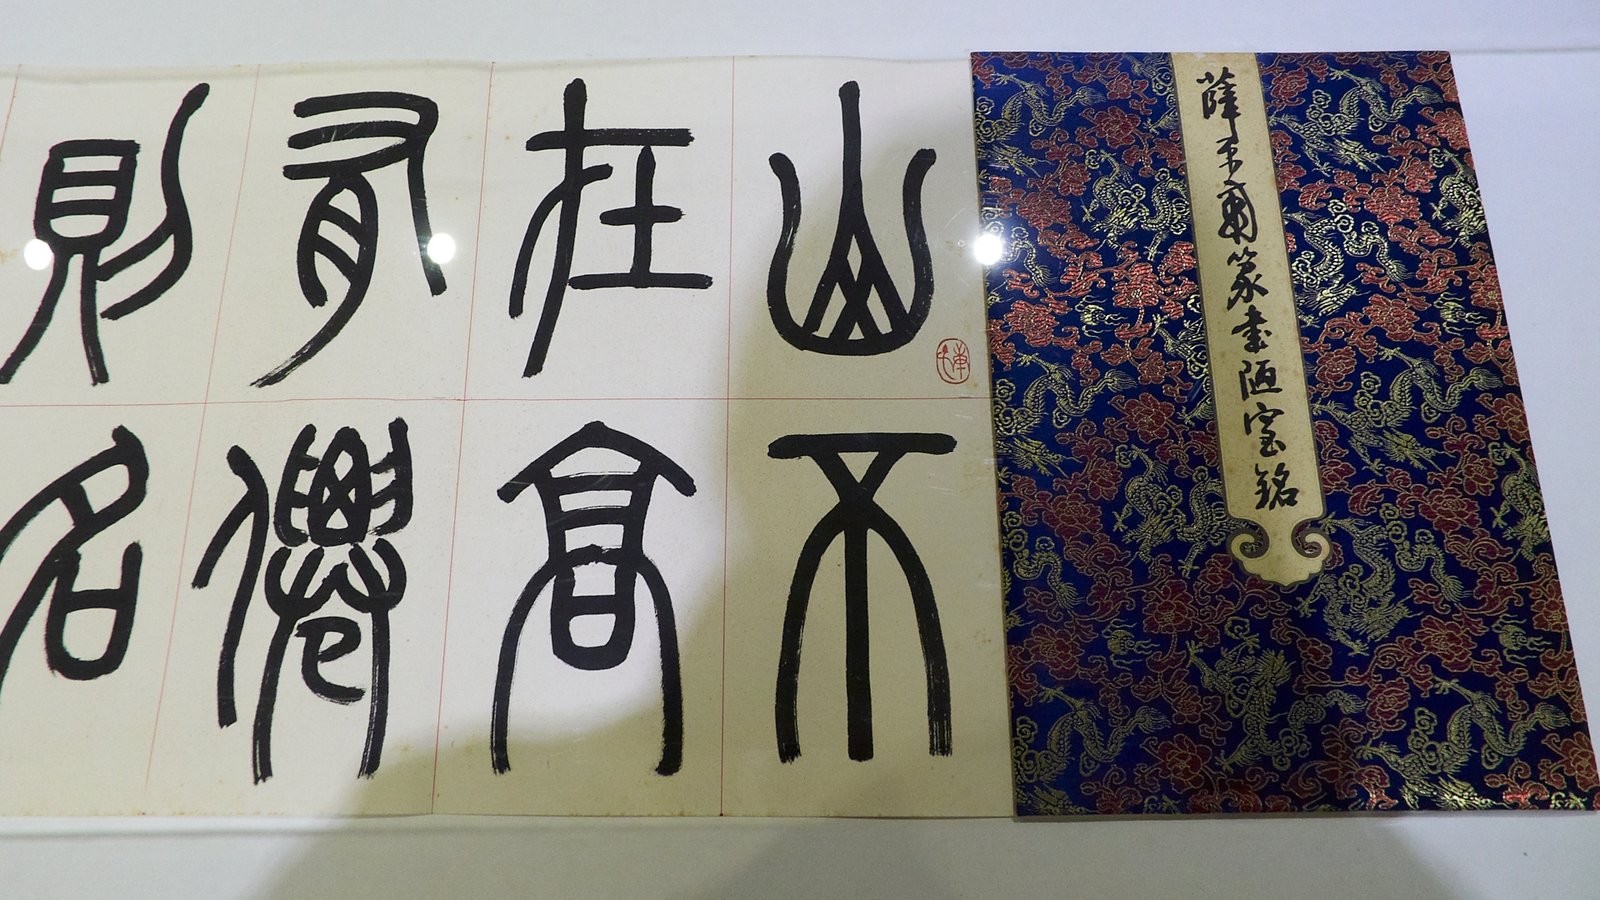 薛平南篆書陋室銘
山不
在高
有僊
則名